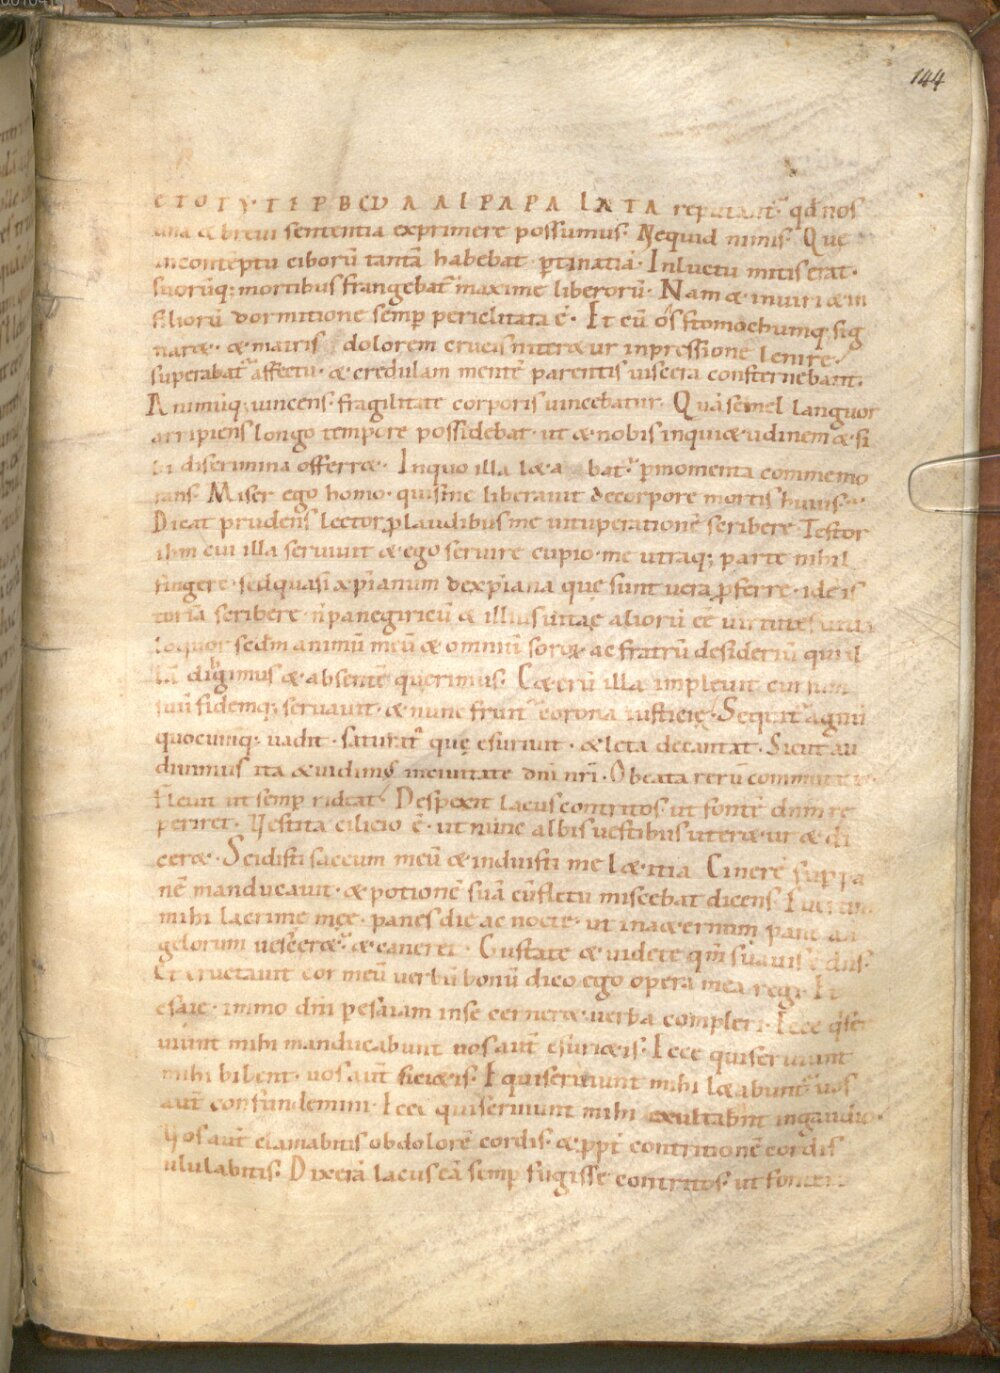 144
reputant᷑. qd̄ nos
una & brevi sententia exprimere possumus. Nequid nimis. Que
incontēptu ciborū tantā habebat ꝑtinatiā. Inluctu mitis erat.
suorūq; mortibus frangebat᷑ maxime liberorū. Nam & inviri & in
filiorū dormitione semꝑ periclitata ē. Et cū os stomochumq; sig
nar&. & matris dolorem crucis niter&ur inpressione lenire.
superabat᷑ affectu. & credulam mentē parentis viscera consternebant.
Animūq; vincens. fragilitate corporis vincebatur. Quā semel languor
arripiens longo tempore possidebat. ut & nobis inqui&udinem & si
bi discrimina offerr&. Inquo illa l&a bat᷑. ꝑ momenta commemo
rans. Miser ego homo. quis me liberavit decorpore mortis huius.
Dicat prudens lector ꝓ laudibus me vituperationē scribere. Testor
ihm cui illa servivit & ego servire cupio. me utraq; parte nihil
fingere. sed quasi xp̄ianum dexp̄iana que sunt vera ꝓferre. id e is
toriā scribere. n̄ panegiricū & illius vitae aliorū eē virtutes
loquor scdm animū meū & omniū soroꝝ ac fratrū desideriū qui il
lā diligimus & absentē querimus. C&erū illa implevit cursum
suū fidemq; servavit. & nunc fruit᷑ corona iusticię. Sequit᷑ agnū
quocumq; vadit. saturat᷑ quę esuriuit. & leta decantat. Sicut au
divimus ita & vidimus incivitate dn̄i nr̄i. O beata rerū commutatio.
Fleuit ut semꝑ rideat. Despexit lacus contritos. ut fontē dnm re
periret. Vestita cilicio ē. ut nūnc albis vestibus uter&ur & di
cer&. Scidisti saccum meū & induisti me l&itia. Cinerē sicut pa
nē manducavit. & potionē suā cū fletu miscebat dicens. Fuerunt
mihi lacrime męe. panes die ac nocte. ut in&ernum pane an
gelorum vescer&᷑. & caneret. Gustate & videte qm̄ suavis ē dn̄s.
Et eructavit cor meū verbū bonū dico ego opera mea regi. Et
esaie. immo dn̄i pesaiam inse cerner& verba compleri. Ecce q̇ ser
viunt mihi manducabunt vos aut̄ esuri&is. Ecce qui serviunt
mihi bibent. vos aut̄ siti&is. E qui serviunt mihi l&abunt᷑. vos
aut̄ confundemini. Ecce qui serviunt mihi exultabūt ingaudio.
Vos aut̄ clamabitis ob dolorē cordis. & ꝓpt̄ contritionē cordis
ululabitis. Dixerā lacus eā semꝑ fugisse contritos. ut fontem